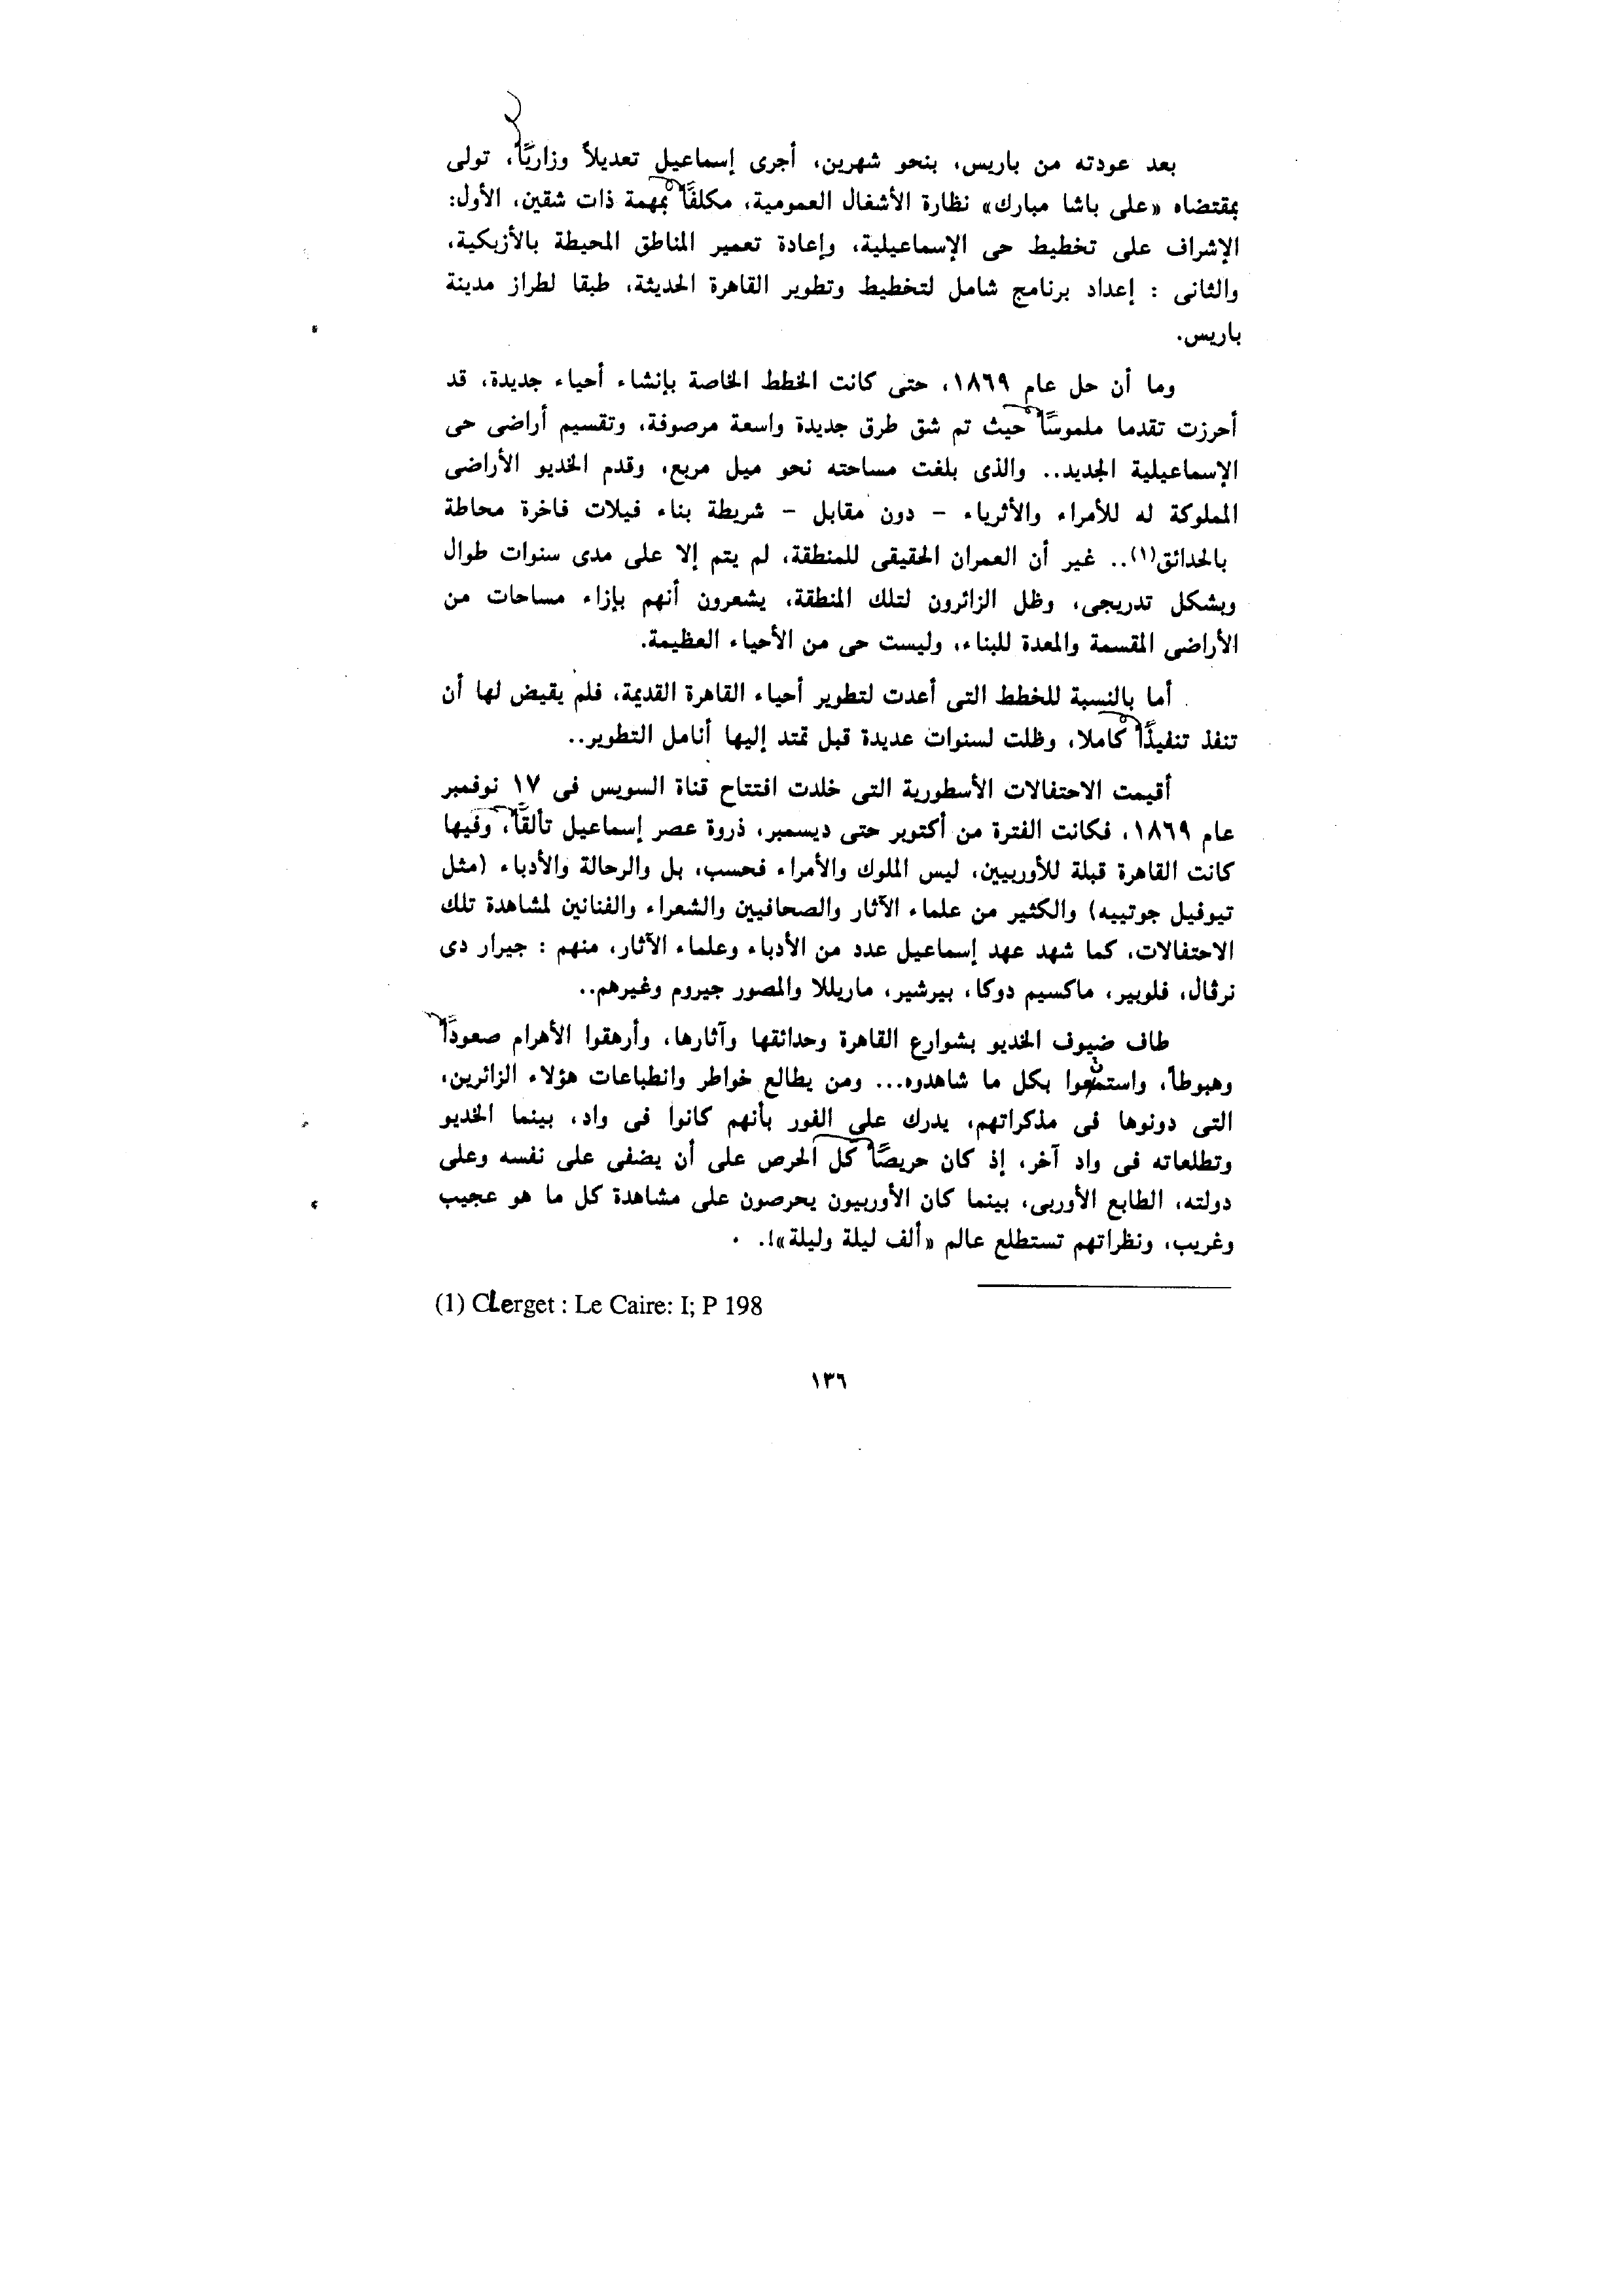 بعد عودته من باريس، بنحو شهرين، أجرى إسماعيل تعديلاً وزاريًا، تولى
بمقتضاه «على باشا مبارك» نظارة الأشغال العمومية، مكلفًا بمهمة ذات شقين، الأول:
الإشراف على تخطيط حى الإسماعيلية، وإعادة تعمير المناطق المحيطة بالأزبكية،
والثانى : إعداد برنامج شامل لتخطيط وتطوير القاهرة الحديثة، طبقا لطراز مدينة
باريس.
وما أن حل عام ١٨٦٩، حتى كانت الخطط الخاصة بإنشاء أحياء جديدة، قد
أحرزت تقدما ملموسًا حيث تم شق طرق جديدة واسعة مرصوفة، وتقسيم أراضى حى
الإسماعيلية الجديد.. والذى بلغت مساحته نحو ميل مربع، وقدم الخديو الأراضى
المملوكة له للأمراء والأثرياء - دون مقابل - شريطة بناء فيلات فاخرة محاطة
بالحدائق(١).. غير أن العمران الحقيقى للمنطقة، لم يتم إلا على مدى سنوات طوال
وبشكل تدريجى، وظل الزائرون لتلك المنطقة، يشعرون أنهم بإزاء مساحات من
الأراضى المقسمة والمعدة للبناء، وليست حى من الأحياء العظيمة.
أما بالنسبة للخطط التى أعدت لتطوير أحياء القاهرة القديمة، فلم يقيض لها أن
تنفذ تنفيذًا كاملا، وظلت لسنوات عديدة قبل تمتد إليها أنامل التطوير..
أقيمت الاحتفالات الأسطورية التى خلدت افتتاح قناة السويس فى ١٧ نوفمبر
عام ١٨٦٩، فكانت الفترة من أكتوبر حتى ديسمبر، ذروة عصر إسماعيل تألقًا، وفيها
كانت القاهرة قبلة للأوربيين، ليس الملوك والأمراء فحسب، بل والرحالة والأدباء (مثل
تيوفيل جوتييه) والكثير من علماء الآثار والصحافيين والشعراء والفنانين لمشاهدة تلك
الاحتفالات، كما شهد عهد إسماعيل عدد من الأدباء وعلماء الآثار، منهم : جيرار دى
نرڤال، فلوبير، ماكسيم دوكا، بيرشير، ماريللا والمصور جيروم وغيرهم..
طاف ضيوف الخديو بشوارع القاهرة وحدائقها وآثارها، وأرهقوا الأهرام صعودًا
وهبوطاً، واستمتعوا بكل ما شاهدوه... ومن يطالع خواطر وانطباعات هؤلاء الزائرين،
التى دونوها فى مذكراتهم، يدرك على الفور بأنهم كانوا فى واد، بينما الخديو
وتطلعاته فى واد آخر، إذ كان حريصًا كل الحرص على أن يضفى على نفسه وعلى
دولته، الطابع الأوربى، بينما كان الأوربيون يحرصون على مشاهدة كل ما هو عجيب
وغريب، ونظراتهم تستطلع عالم «ألف ليلة وليلة»!.
(1) Clerget : Le Caire: I; P 198
١٣٦